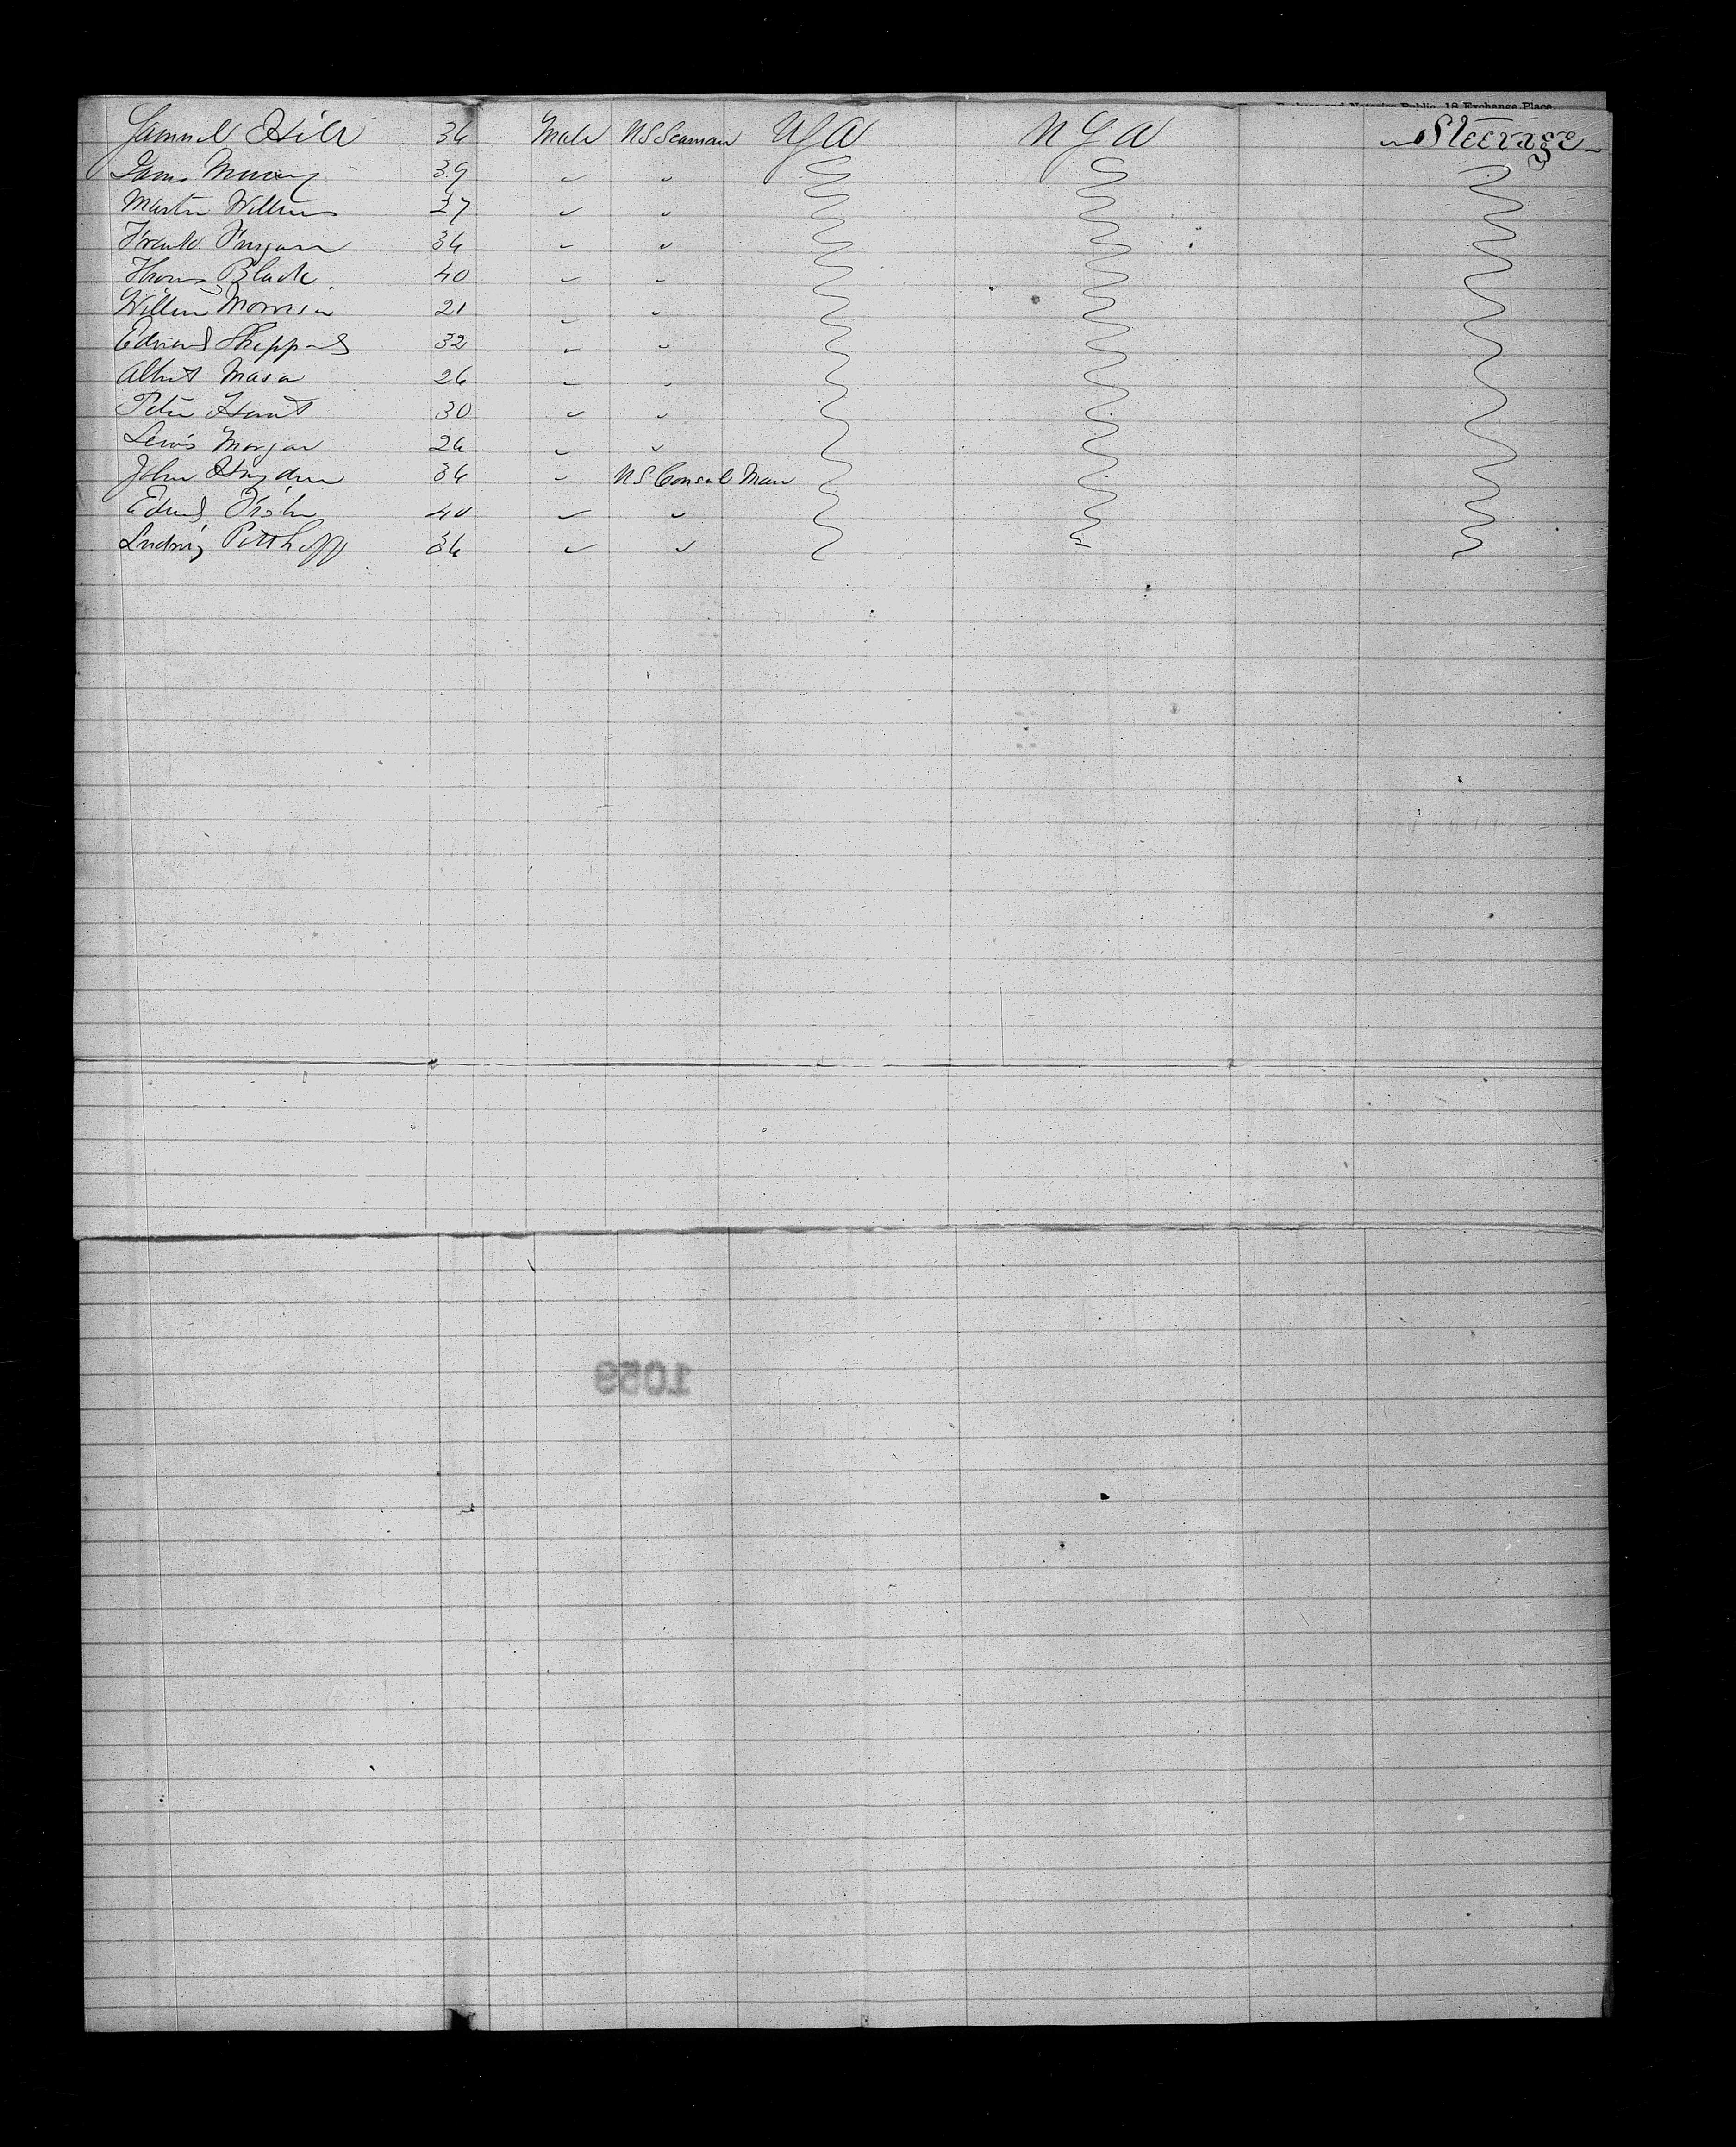 Brokers and Notaries Public, 18 Exchange Place,
Samuel Hill 36 Male US Seaman USA USA Steerage
James Murray 39 " "
Martin Williams 27 " "
Frank 36 " "
Thomas Black 40 " "
William Morrison 21 " "
Edward Sheppard 32 " "
Albert Mason 26 " "
Peter 30 " "
Lewis Morgan 26 " "
John 36 " US Consul Man
40 " "
Ludwig Potthoff 36 " "
1059